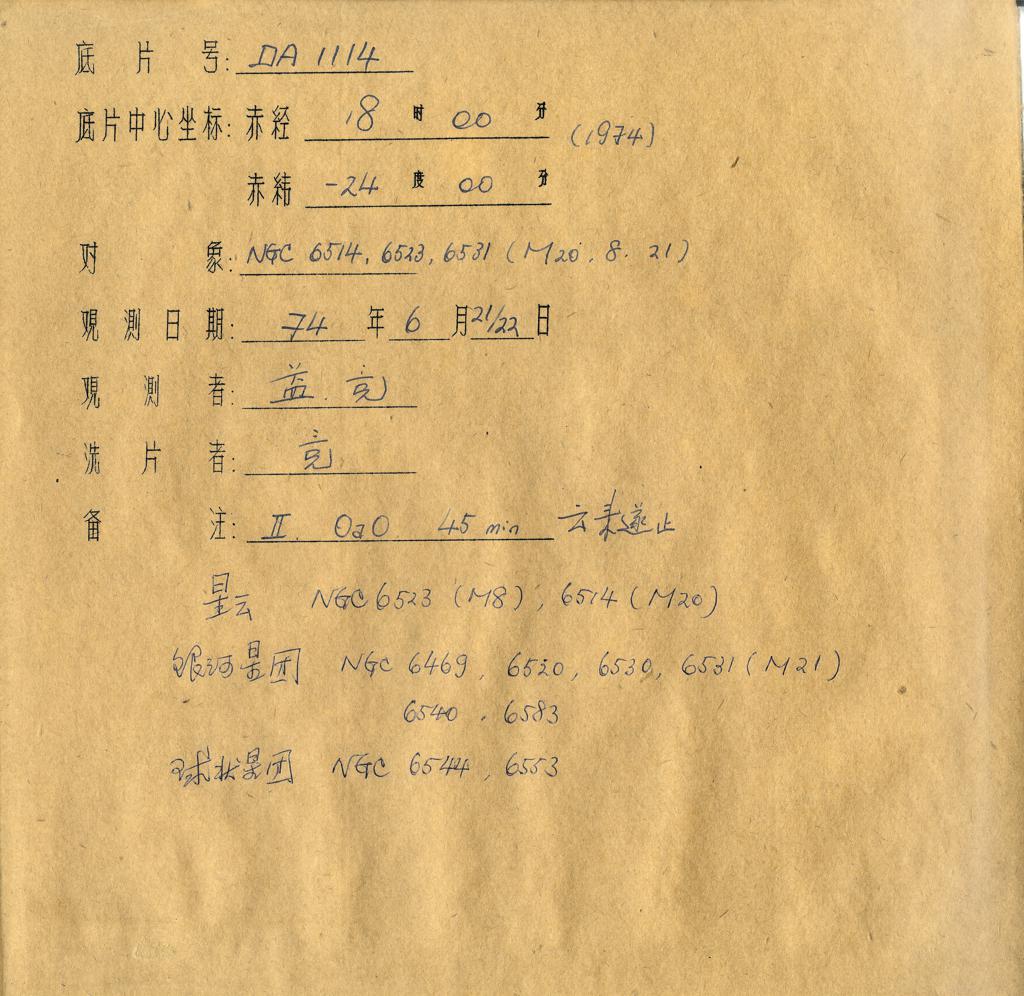 底片号: DA 1114
底片中心坐标: 赤经 18 时 00 分 (1974)
赤纬 -24 度 00 分
对象: NGC 6514, 6523, 6531 (M20, 8, 21)
观测日期: 74 年 6 月 21/22 日
观测者: 益. 亮
洗片者: 亮
备注: II. OaO 45 min 云来遂止
星云 NGC 6523 (M8), 6514 (M20)
银河星团 NGC 6469, 6520, 6530, 6531 (M21)
6540, 6583
球状星团 NGC 6544, 6553